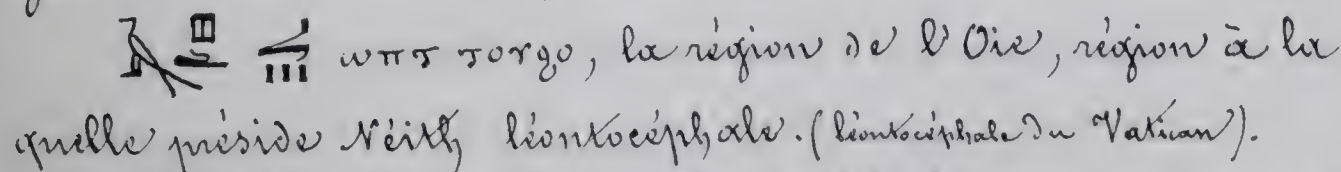 ωπτ τογϩο, la région de l'Oie, région à la
quelle préside Néith léontocéphale. (léontocéphale du Vatican).